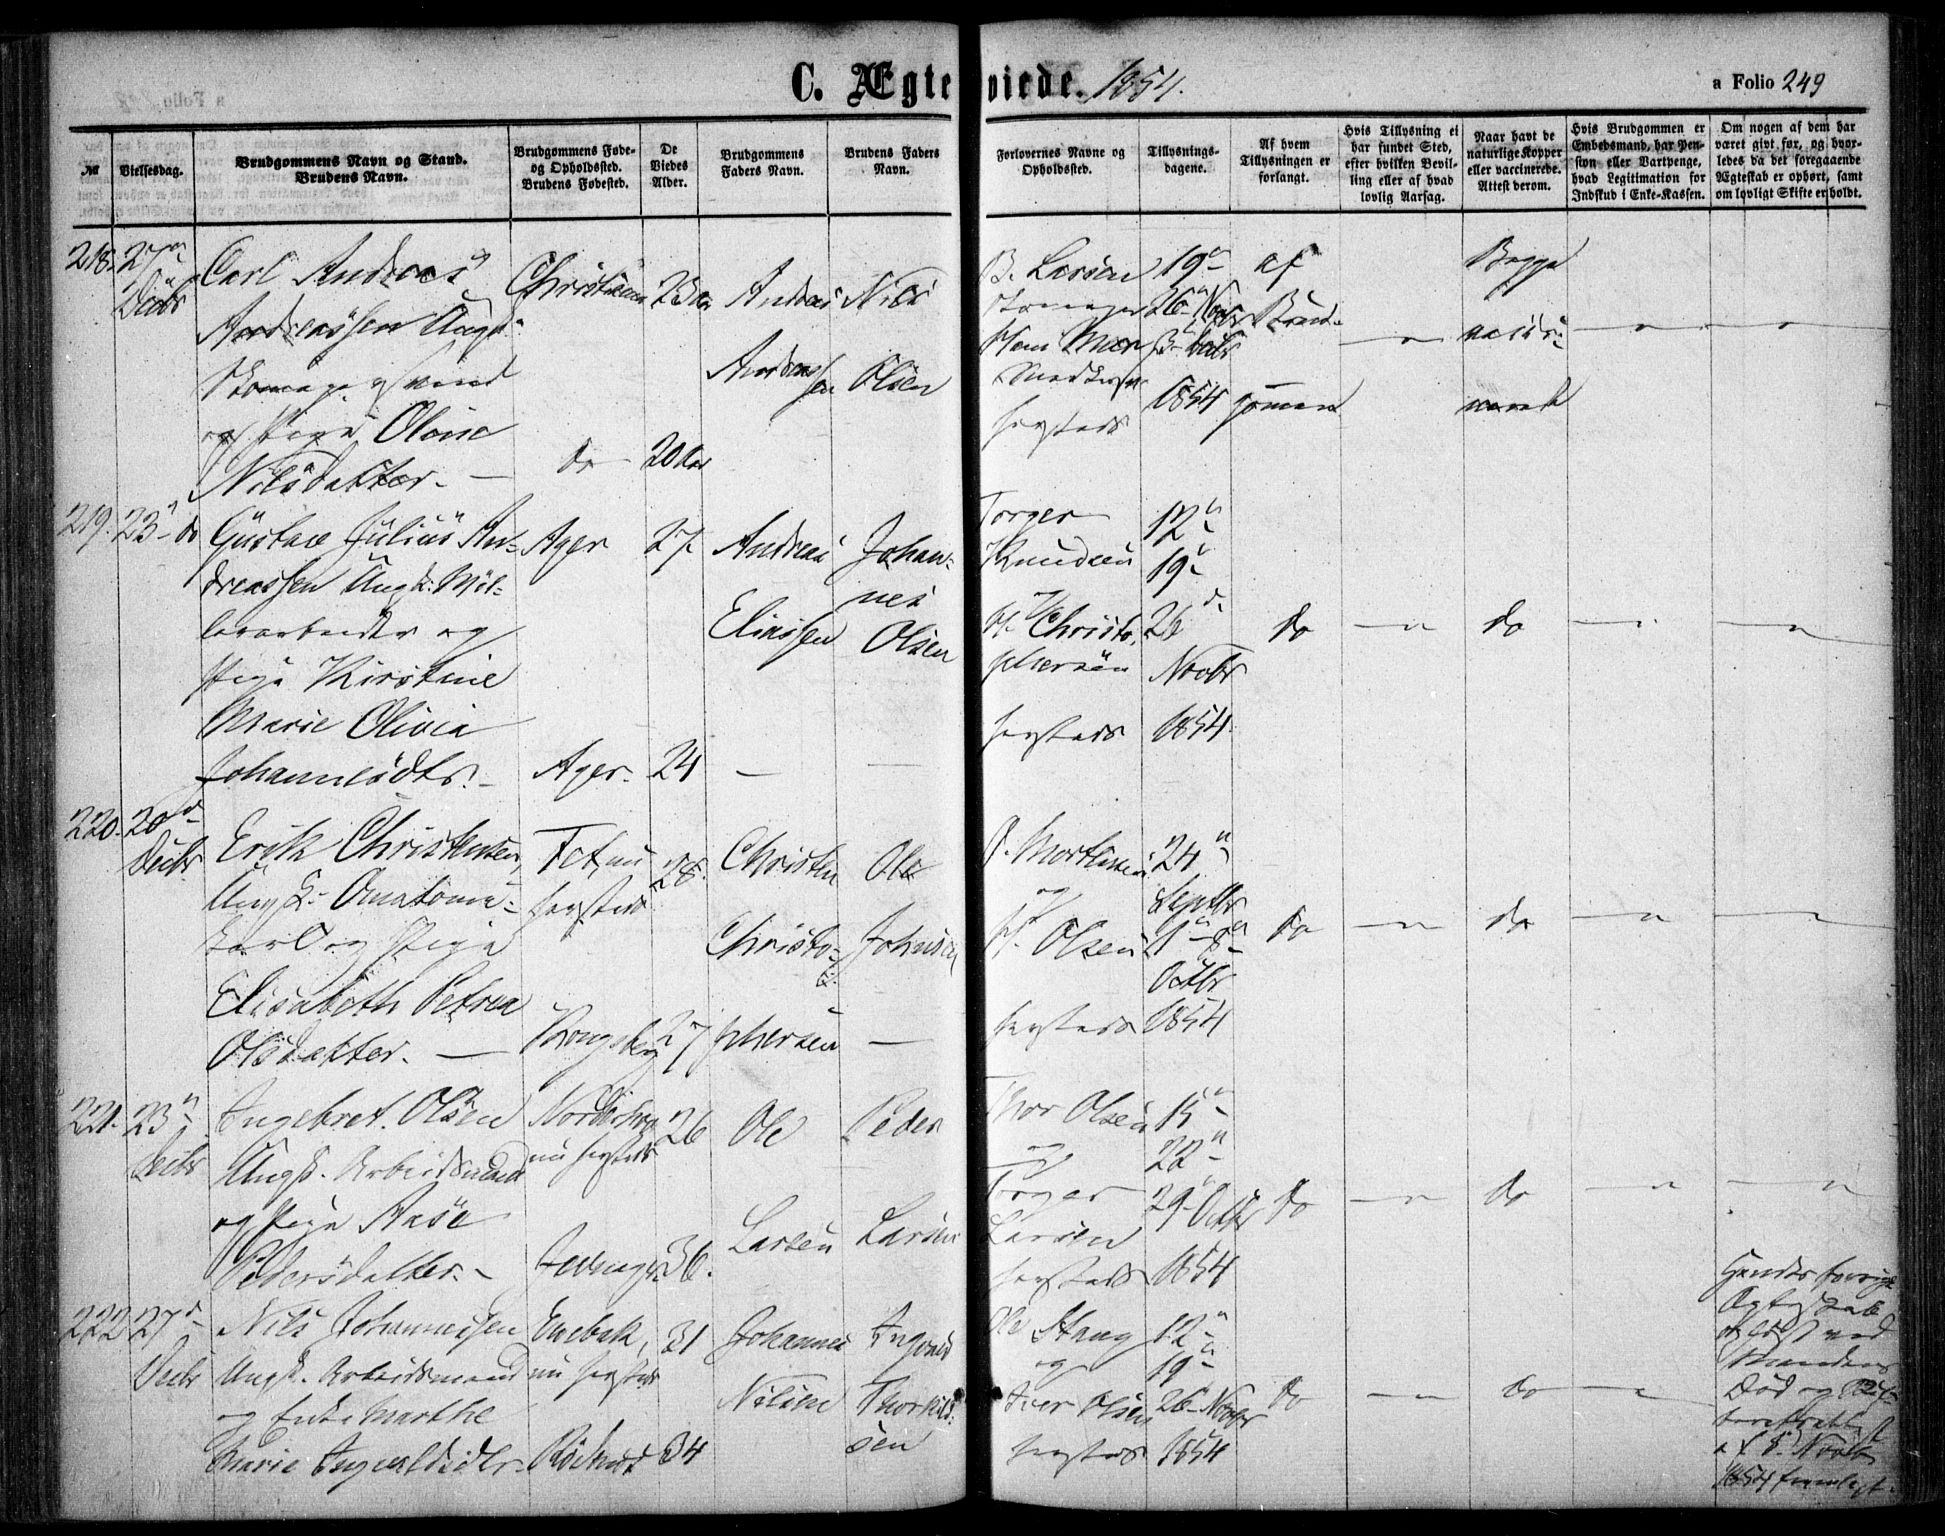 C. Ægteviede. 1854.
a Folio 249
No
Vielsesdag.
Brudgommens Navn og Stand.
Brudens Navn.
Brudgommens Føde-
og Opholdssted.
Brudens Fødested.
De
Viedes
Alder.
Brudgommens
Faders Navn.
Brudens Faders
Navn.
Forlovernes Navne og
Opholdssted.
Tillysnings-
dagene.
Af hvem
Tillysningen er
forlangt.
Hvis Tillysning ei
har fundet Sted,
efter hvilken Bevil-
ling eller af hvad
lovlig Aarsag.
Naar havt de
naturlige Kopper
eller vaccinerede.
Attest derom.
Hvis Brudgommen er
Embedsmand, har Pen-
sion eller Vartpenge,
hvad Legitimation for
Indskud i Enke-Kassen.
Om nogen af dem har
været givt før, og hvor-
ledes da det foregaaende
Ægteskab er ophørt, samt
om lovligt Skifte er holdt.
218. 27de
Decbr
Carl Andreas
Andreassen Ungk.
og Pige Oline
Nilsdatter. —
Christiania
do
23 Aar
20 Aar
Andreas
Andreas
sen
Nils
Olsen
B. Larsen
hersteds
19de
26de Novbr
3die Decbr
1854
af
Brud-
gommen
Begge
vacci-
nerede
219. 23de do
Gustav Julius An-
dreassen Ungk. Møl-
lerarbeider og
Pige Kirstine
Marie Olivia
Johannesdtr. -
Ager
Ager.
27
24
Andreas
Eliassen
Johan-
nes
Olsen
Torger
Knudsen
H. Christo-
phersen
hersteds
12te
19de
26de
Novbr
1854.
do
do
220. 20de
Decbr
Erik Christensen,
Ungk. Anatomi-
karl og Pige
Elisabeth Petrea
Olsdatter. —
nu
hersteds
Kongsberg
28.
27
Christen
Christo-
phersen
Ole
Johnsen
—
P. Mortensen
og
H. Olsen
hersteds
24de
Septbr
1ste 8de
Octbr
1854
do
do
221. 23de
Decbr
Ingebret Olsen
Ungk. Arbeidsmand
og Pige Aase
Pedersdatter. -
nu hersteds
Jevnager
26
36.
Ole
Larsen
Peder
Larsen
Thor Olsen
og
Torger
Larsen
hersteds
15de
22de
29de Octbr
1854
do
do
222 27de
Decbr
Nils Johannessen
Ungk. Arbeidsmand
og Enke Marthe
Marie Ingvaldsdtr.
Enebak,
nu hersteds
31
34
Johannes
Nilsen
Ingvald
Thorkild-
sen
Ole Stang
og
Iver Olsen
hersteds
12te
19de
26de Novbr
1854
do
do
Hendes forrige
Ægteskab
opløst ved
Mandens
Død og Skif-
teattest
af 8de Novbr
1854 fremlagt.